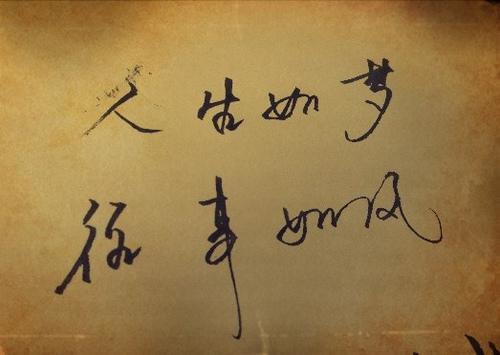 人生如梦
往事如风